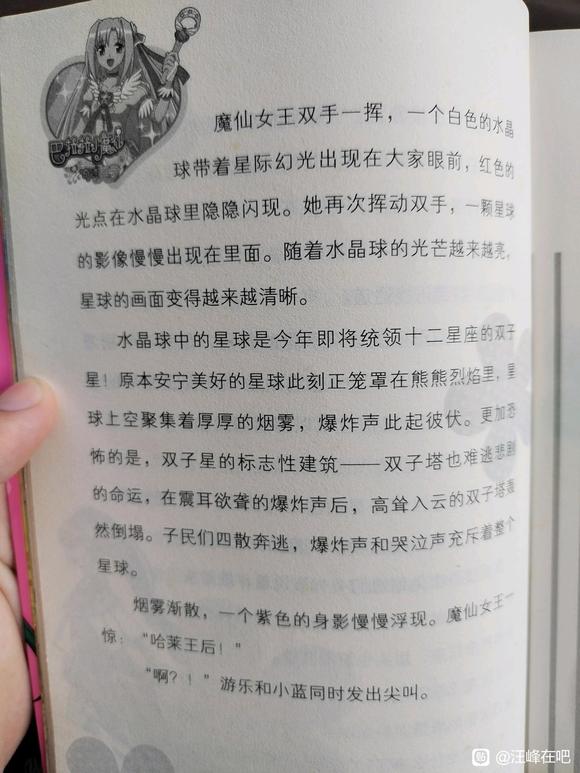 巴啦啦小魔仙
魔仙女王双手一挥，一个白色的水晶
球带着星际幻光出现在大家眼前，红色的
光点在水晶球里隐隐闪现。她再次挥动双手，一颗星球
的影像慢慢出现在里面。随着水晶球的光芒越来越亮，
星球的画面变得越来越清晰。
水晶球中的星球是今年即将统领十二星座的双子
星！原本安宁美好的星球此刻正笼罩在熊熊烈焰里，星
球上空聚集着厚厚的烟雾，爆炸声此起彼伏。更加恐
怖的是，双子星的标志性建筑——双子塔也难逃悲剧
的命运，在震耳欲聋的爆炸声后，高耸入云的双子塔轰
然倒塌。子民们四散奔逃，爆炸声和哭泣声充斥着整个
星球。
烟雾渐散，一个紫色的身影慢慢浮现。魔仙女王一
惊：“哈莱王后！”
“啊？！”游乐和小蓝同时发出尖叫。
贴 @汪峰在吧